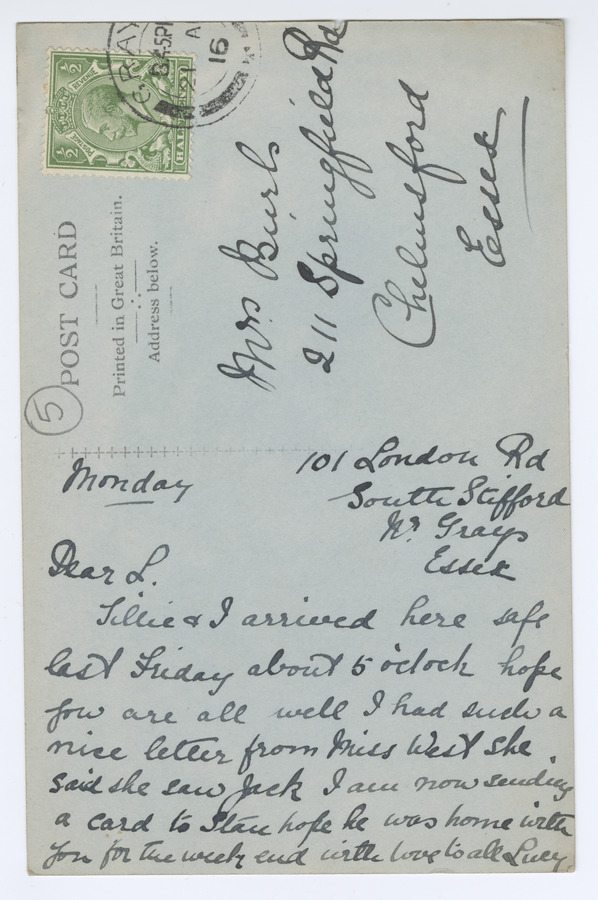 POST CARD
Printed in Great Britain.
Address below.
5
½ ½
POSTAGE REVENUE
HALFPENNY
GRAYS
8.45PM
21 A
16
Mrs Burls
211 Springfield Rd
Chelmsford
Essex
Monday
101 London Rd
South Stifford
Nr. Grays
Essex
Dear L.
Tillie & I arrived here safe
last Friday about 5 o'clock hope
you are all well I had such a
nice letter from Miss West she
said she saw Jack I am now sending
a card to Stan hope he was home with
you for the week end with love to all Lucy.